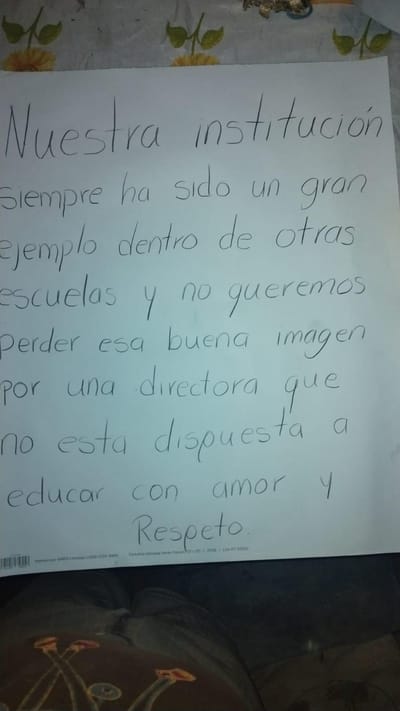 Nuestra institución
siempre ha sido un gran
ejemplo dentro de otras
escuelas y no queremos
perder esa buena imagen
por una directora que
no esta dispuesta a
educar con amor y
Respeto.